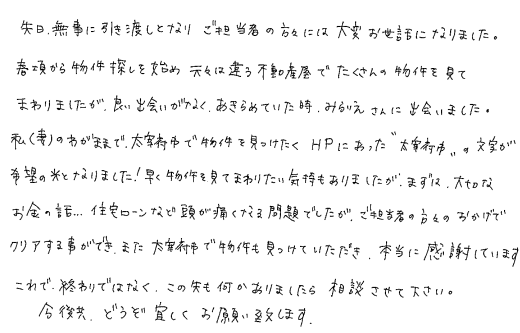 先日、無事に引き渡しとなり ご担当者の方々には大変お世話になりました。
春頃から物件探しを始め 元々は違う不動産屋でたくさんの物件を見て
まわりましたが、良い出会いがなく、あきらめていた時、みらいえさんに出会いました。
私(妻)のわがままで、太宰府市で物件を見つけたく HPにあった"太宰府市"の文字が
希望の光となりました!早く物件を見てまわりたい気持もありましたが、まずは、大切な
お金の話… 住宅ローンなど頭が痛くなる問題でしたが、ご担当者の方々のおかげで
クリアする事ができ、また太宰府市で物件も見つけていただき、本当に感謝しています
これで、終わりではなく、この先も何かありましたら相談させて下さい。
今後共、どうぞ宜しくお願い致します。